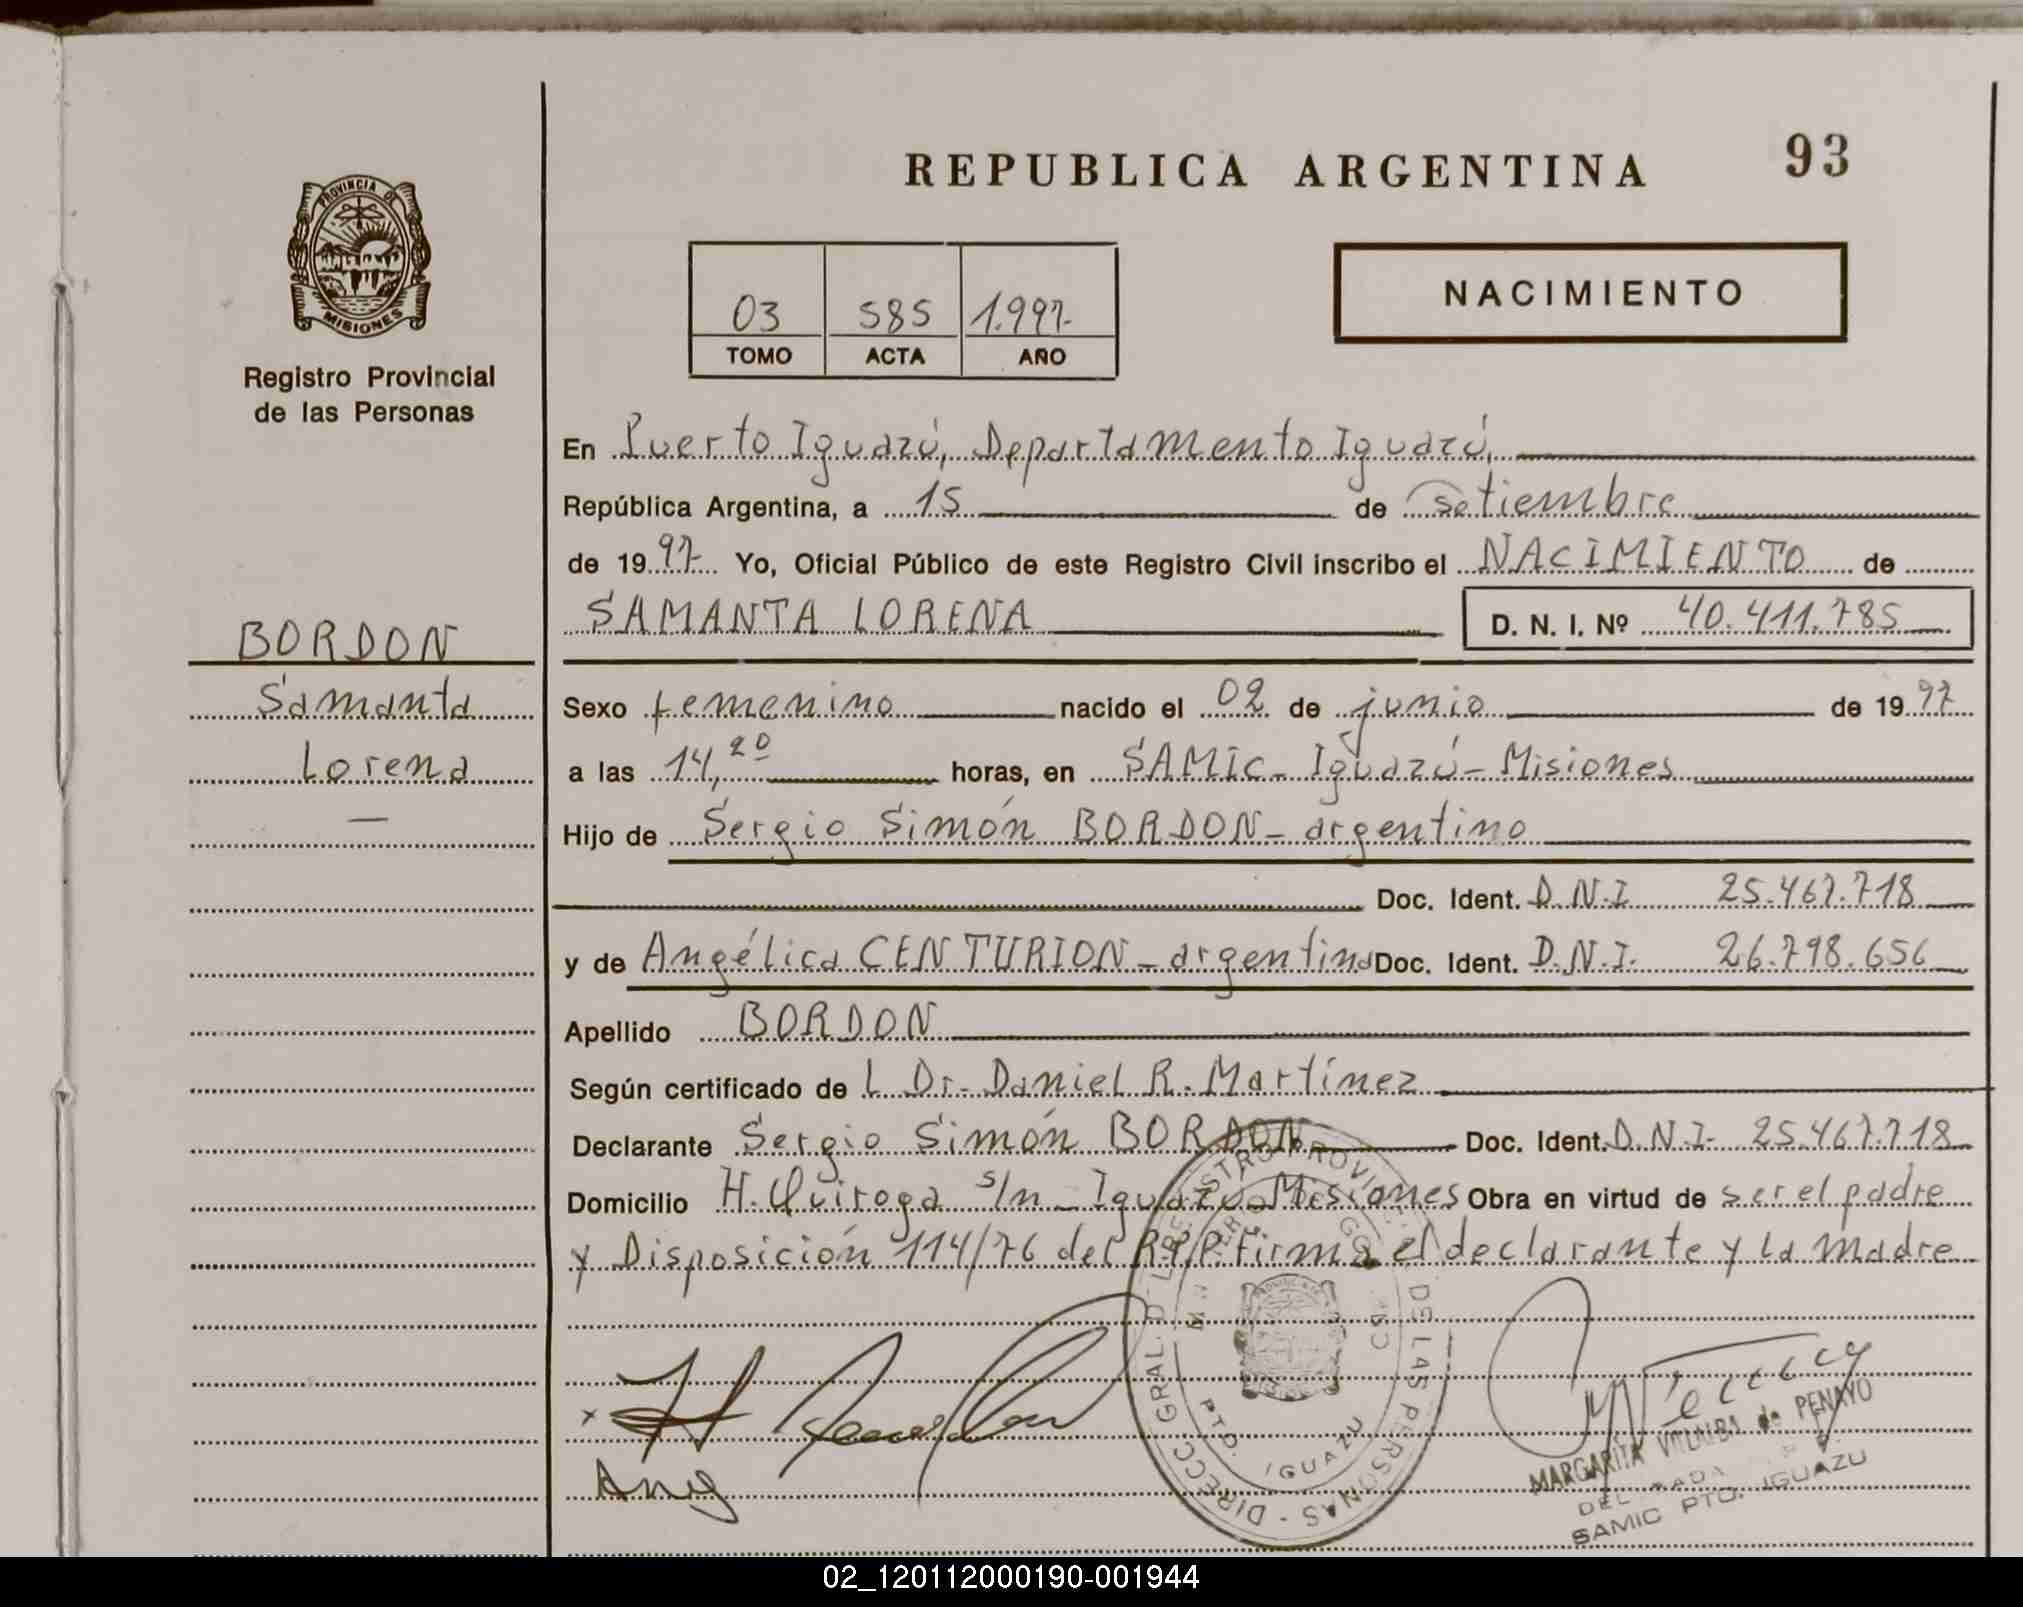 REPUBLICA ARGENTINA
93
PROVINCIA DE
MISIONES
Registro Provincial
de las Personas
03 585 1.997-
TOMO ACTA AÑO
NACIMIENTO
En Puerto Iguazú, Departamento Iguazú,
República Argentina, a 15 de setiembre
de 1997 Yo, Oficial Público de este Registro Civil inscribo el NACIMIENTO de
SAMANTA LORENA D. N. I. Nº 40.411.785
BORDON
Samanta
Lorena
Sexo femenino nacido el 02 de junio de 1997
a las 14,20 horas, en SAMIC- Iguazú- Misiones
Hijo de Sergio Simón BORDON- argentino
Doc. Ident. D.N.I 25.467.718
y de Angélica CENTURION- argentina Doc. Ident. D.N.I. 26.798.656
Apellido BORDON
Según certificado de L Dr. Daniel R. Martínez
Declarante Sergio Simón BORDON Doc. Ident. D.N.I- 25.467.718
Domicilio H. Quiroga s/n - Iguazú Misiones Obra en virtud de ser el padre
y Disposición 114/76 del R.P.P. firma el declarante y la madre
DIRECC. GRAL. DEL REGISTRO PROVINCIAL DE LAS PERSONAS
PTO. IGUAZU
Ang
MARGARITA VILLALBA de PENAYO
SAMIC PTO. IGUAZU
02_120112000190-001944